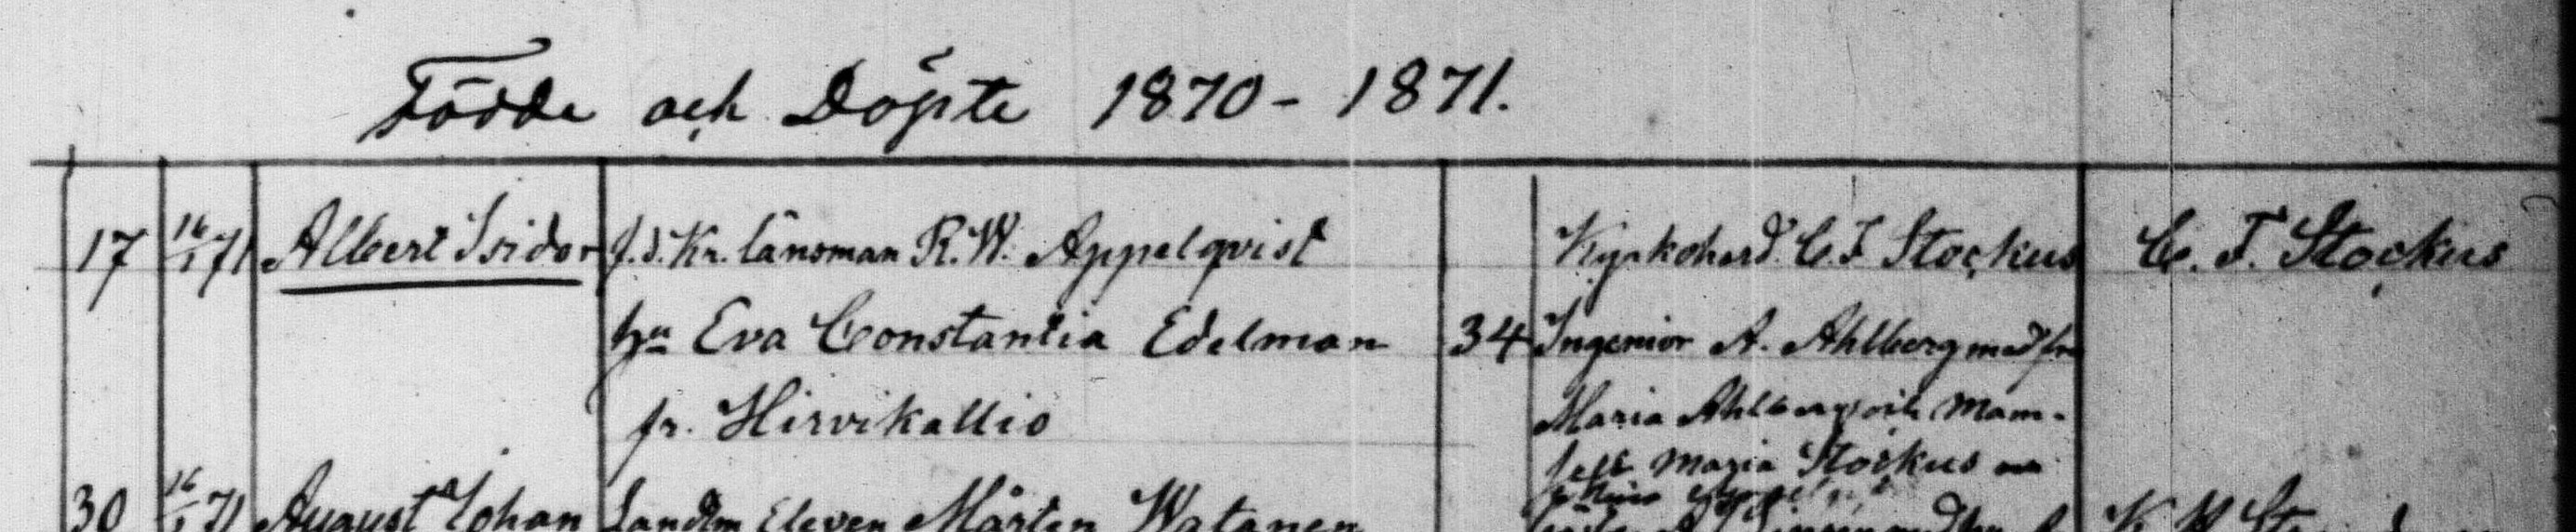 Födde och Döpte 1870-1871.
17 16/1 71 Albert Isidor f.d. Kr. länsman R.W. Appelqvist Kyrkoherd. C.F. Stockus C. F. Stockus
hu Eva Constantia Edelman 34 Ingeniör A. Ahlberg med fru
fr. Hirvikallio Maria Ahlberg och Mam-
sell Maria Stockus
30 16/1 71 August Johan Landtm Eleven Mårten Watanen